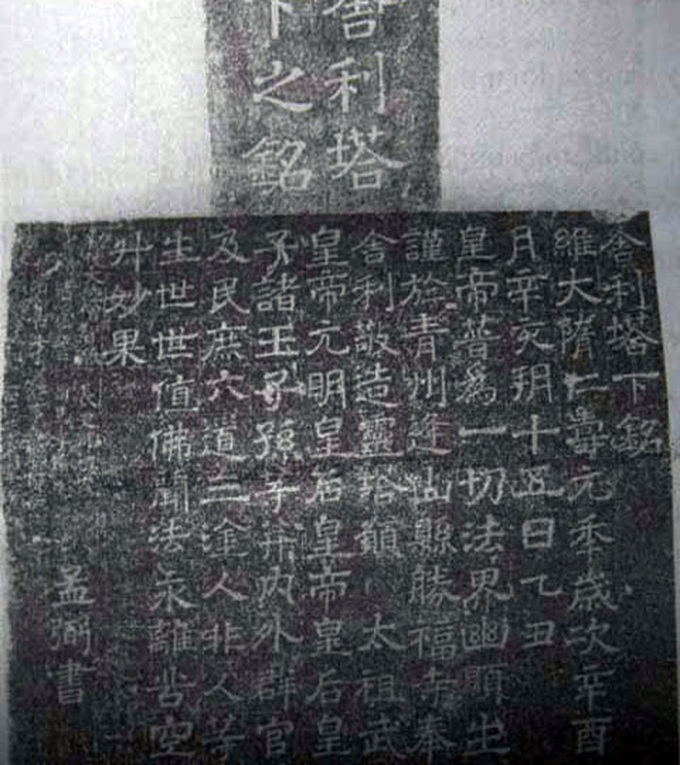 舍利塔
下之銘
舍利塔下銘
維大隋仁壽元秊歲次辛酉
月辛亥朔十五日乙丑
皇帝普為一切法界幽顯生
謹於青州逢山縣勝福寺奉
舍利敬造靈塔願太祖武
皇帝元明皇后皇帝皇后皇
子諸王子孫等并內外群官
及民庶六道三塗人非人等
生世世值佛聞法永離苦空
升妙果
孟弼書